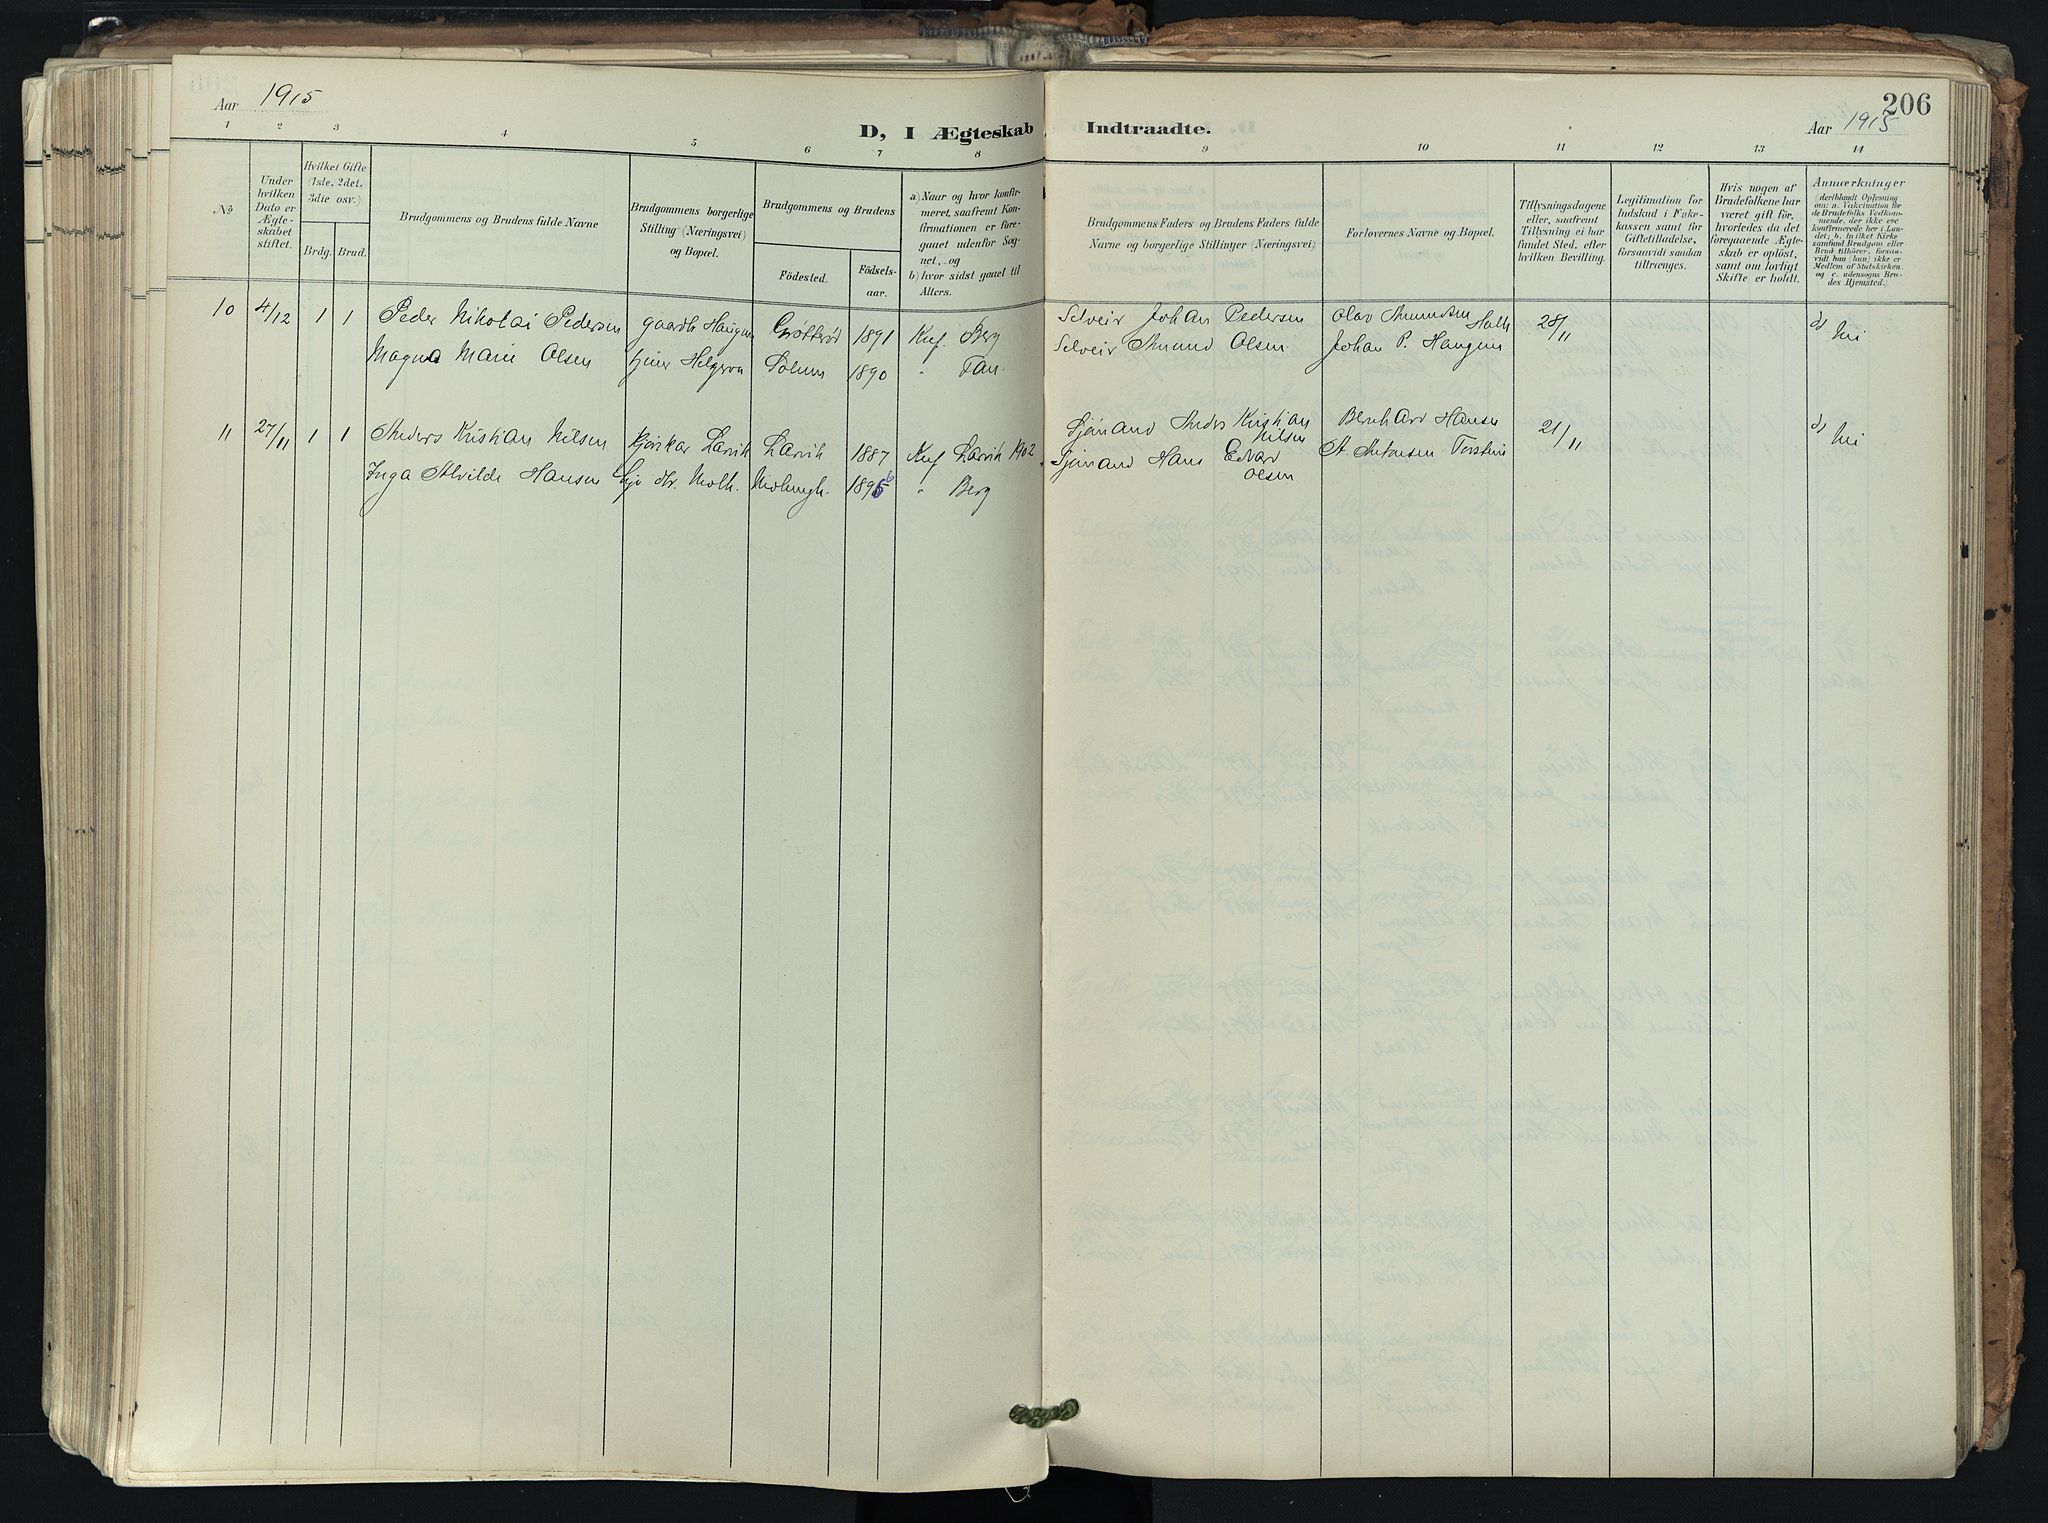 Aar 1915
206
D, I Ægteskab Indtraadte.
Aar 1915
1 2 3 4 5 6 7 8 9 10 11 12 13 14
No
Under hvilken Dato er Ægteskabet stiftet.
Hvilket Gifte (1ste, 2det, 3die osv.)
Brdg. Brud.
Brudgommens og Brudens fulde Navne
Brudgommens borgerlige Stilling (Næringsvei) og Bopæl.
Brudgommens og Brudens
Födested.
Födsels-aar.
a) Naar og hvor konfirmeret, saafremt Konfirmationen er foregaaet udenfor Sognet, og
b) hvor sidst gaaet til Alters.
Brudgommens Faders og Brudens Faders fulde Navne og borgerlige Stillinger (Næringsvei)
Forlovernes Navne og Bopæl.
Tillysningsdagene eller, saafremt Tillysning ei har fundet Sted, efter hvilken Bevilling.
Legitimation for Indskud i Enkekassen samt for Giftetilladelse, forsaavidt saadan tiltrænges.
Hvis nogen af Brudefolkene har været gift för, hvorledes da det foregaaende Ægteskab er oplöst, samt om lovligt Skifte er holdt.
Anmærkninger (deriblandt Oplysning om: a. Vakcination for de Brudefolks Vedkommende, der ikke ere konfirmerede her i Landet; b. In ilket Kirkesamfund Brudgom eller Brud tilhörer, forsaavidt han (hun) ikke er Medlem af Statskirken, og c. udensogns Brudes Hjemsted.
10 4/12 1 1 Peder Nikolai Pedersen gaardb Haugen 1891 Knf Berg Selveir Johan Pedersen Olav Amundsen 28/11 d) Nei
Magna Marie Olsen Helgeroa Solum 1890 " Tan. Selveir Amund Olsen Johan P. Haugen
11 27/11 1 1 Anders Kristian Nilsen Larvik Larvik 1887 Knf Larvik 1902 Sjömand Anders Kristian Nilsen Bernhard Hansen 21/11 d) Nei
Inga Alvilde Hansen 1895 6 " Berg Sjömand Hans Edvard Olsen St. Antonsen